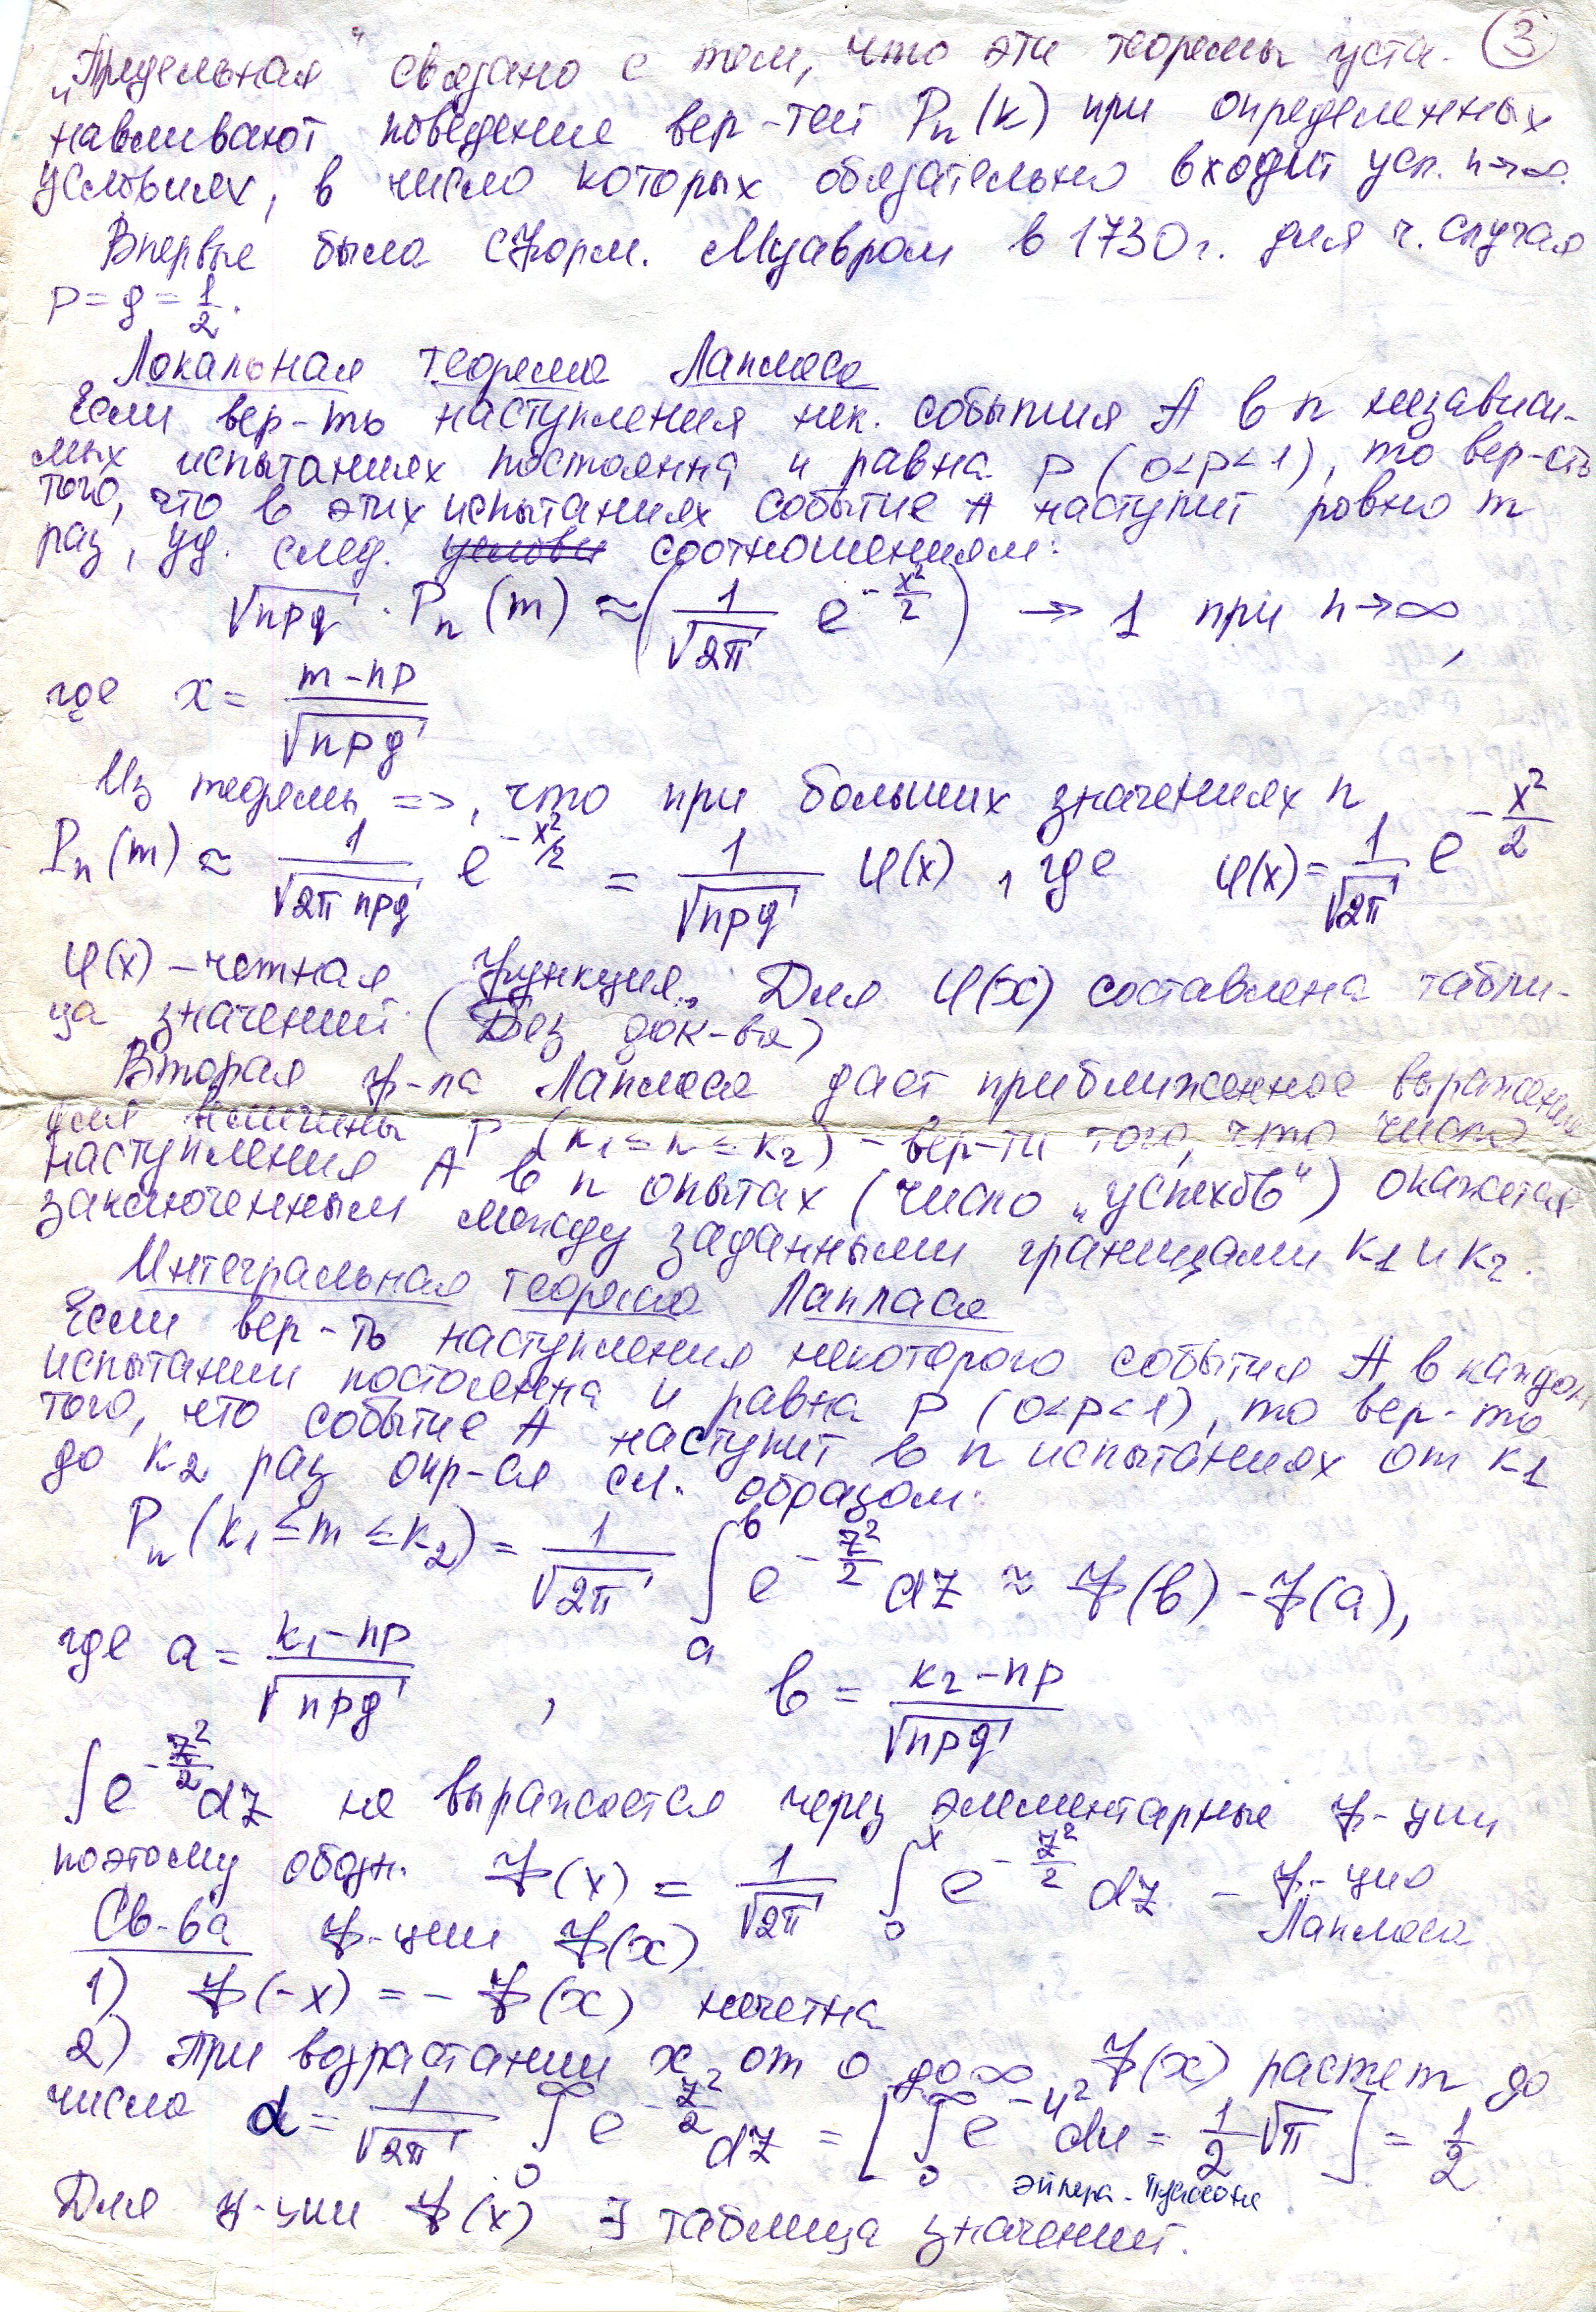 „Предельная“ связано с тем, что эти теоремы уста- ③
навливают поведение вер-тей Pₙ(k) при определенных
условиях, в число которых обязательно входит усл. n→∞.
Впервые была сформ. Муавром в 1730г. для ч. случая
p = q = 1/2.
Локальная теорема Лапласа
Если вер-ть наступления нек. события А в n независи-
мых испытаниях постоянна и равна p (0<p<1), то вер-сть
того, что в этих испытаниях событие А наступит ровно m
раз, уд. след. услови соотношениям:
√npq · Pₙ(m) ≈ (1/√2π e^(-x²/2)) → 1 при n→∞,
где x = (m-np)/√npq
Из теоремы =>, что при больших значениях n
Pₙ(m) ≈ 1/√2π npq e^(-x²/2) = 1/√npq φ(x), где φ(x) = 1/√2π e^(-x²/2)
φ(x) – четная функция. Для φ(x) составлена табли-
ца значений. (Без док-ва)
Вторая ф-ла Лапласа дает приближенное выражение
для величины P (k₁ ≤ n ≤ k₂) – вер-ти того, что число
наступления А в n опытах (число „успехов“) окажется
заключенным между заданными границами k₁ и k₂.
Интегральная теорема Лапласа
Если вер-ть наступления некоторого события А в каждом
испытании постоянна и равна p (0<p<1), то вер-ть
того, что событие А наступит в n испытаниях от k₁
до k₂ раз опр-ся сл. образом:
Pₙ(k₁ ≤ m ≤ k₂) = 1/√2π ∫ₐᵇ e^(-z²/2) dz ≈ Ф(в) - Ф(а),
где a = (k₁-np)/√npq , в = (k₂-np)/√npq
∫e^(-z²/2) dz не выражается через элементарные ф-ции
поэтому обозн. Ф(x) = 1/√2π ∫₀ˣ e^(-z²/2) dz – ф-ция
Лапласа
Св-ва ф-ции Ф(x)
1) Ф(-x) = - Ф(x) нечетна
2) При возрастании x от 0 до ∞ Ф(x) растет до
числа d = 1/√2π ∫₀^∞ e^(-z²/2) dz = [∫₀^∞ e^(-u²) du = 1/2 √π] = 1/2
Эйлера-Пуассона
Для ф-ции Ф(x) ∃ таблица значений.